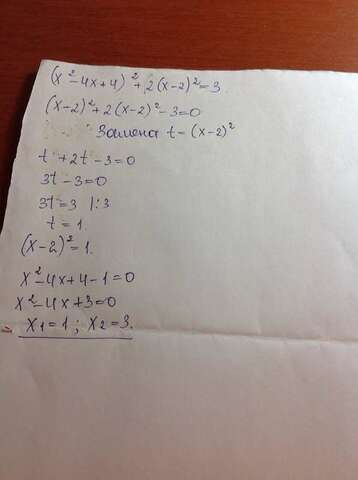 (x²-4x+4)²+2(x-2)²=3
(x-2)²+2(x-2)²-3=0
Замена t=(x-2)²
t+2t-3=0
3t-3=0
3t=3 |:3
t=1.
(x-2)²=1.
x²-4x+4-1=0
x²-4x+3=0
x₁=1; x₂=3.